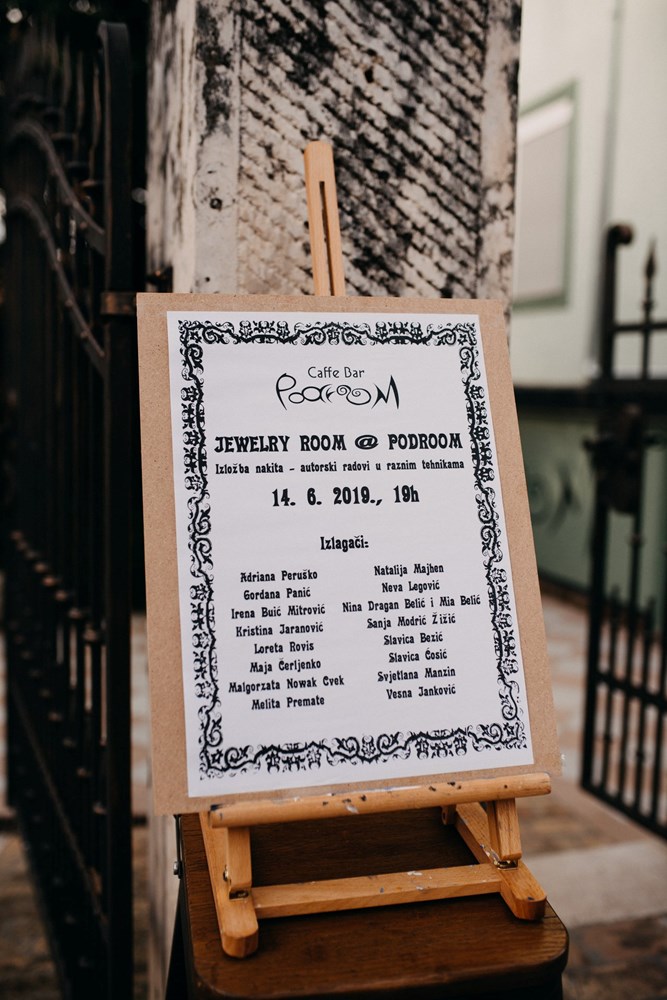 Caffe Bar
PodrooM
JEWELRY ROOM @ PODROOM
Izložba nakita - autorski radovi u raznim tehnikama
14. 6. 2019., 19h
Izlagači:
Adriana Peruško
Gordana Panić
Irena Buić Mitrović
Kristina Jaranović
Loreta Rovis
Maja Čerljenko
Malgorzata Nowak Cvek
Melita Premate
Natalija Majhen
Neva Legović
Nina Dragan Belić i Mia Belić
Sanja Modrić Žižić
Slavica Bezić
Slavica Ćosić
Svjetlana Manzin
Vesna Janković